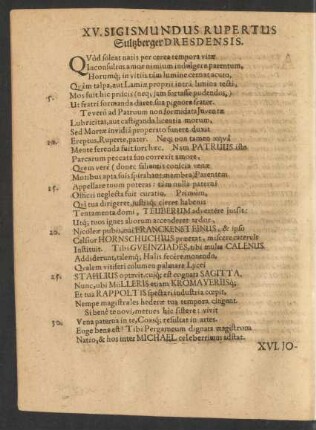 XV. SIGISMUNDUS RUPERTUS
Sultzberger DRESDENSIS.
QUod soleat nati per cerea tempora vitæ
Inconsultus amor nimium indulgere parentum,
Horumq; in vitiis tàm lumine cernat acuto,
Quàm talpa, aut Lamiæ proprii intrà limina tecti,
5. Mos fuit hic priscis (neq; jam fortasse pudendus,)
Ut fratri formanda daret sua pignora frater.
Teverò ad Patruum non formidata juventæ
Lubricitas, aut castiganda licentia morum,
Sed Mortis invidiâ properato funere duxit
20. Ereptus, Ruperte, pater. Neq; non tamen æquâ
Mente ferenda fuit sors hæc. Non PATRUUS ille
Parcarum peccata suo correxit amore,
Quem verè (donec filianti conscia vitæ
Motibus apta suis spirabant membra) Parentem
15. Appellare tuum poteras: tàm nulla paterni
Officii neglecta fuit curatio. Primùm,
Qui tua dirigeret, justisq; ciere habenis
Tentamenta domi, TEUBERUM advertere jussit:
Utq; tuos ignes aliorum accenderet ardor,
20. Nicoleæ pubis, cui FRANCKENSTEINUS, & ipsi
Celsior HORNSCHUCHIUS præerat, miscere catervis
Instituit. Tibi GVEINZIADES, tibi multa CALENUS
Addiderunt, talemq; Halis fecêre movendo,
Qualem viTiferi columen palmare Lycei
25. STAHLIUS optaret, cuiq; est cognata SAGITTA.
Nunc, ubi MöLLERIS etiam KROMAYERIISq;
Et tua RAPPOLTIS spectari industria cœpit,
Nempe magistrales hederæ tua tempora cingunt.
Si benè te novi, metues hic sistere: vivit
30. Vena paterna in te, Cossq; resultat in artes.
Euge bene est! Tibi Pergameum dignata magistrum
Natio, & hos inter MICHAEL celeberrimus adstat.
XVI. JO-